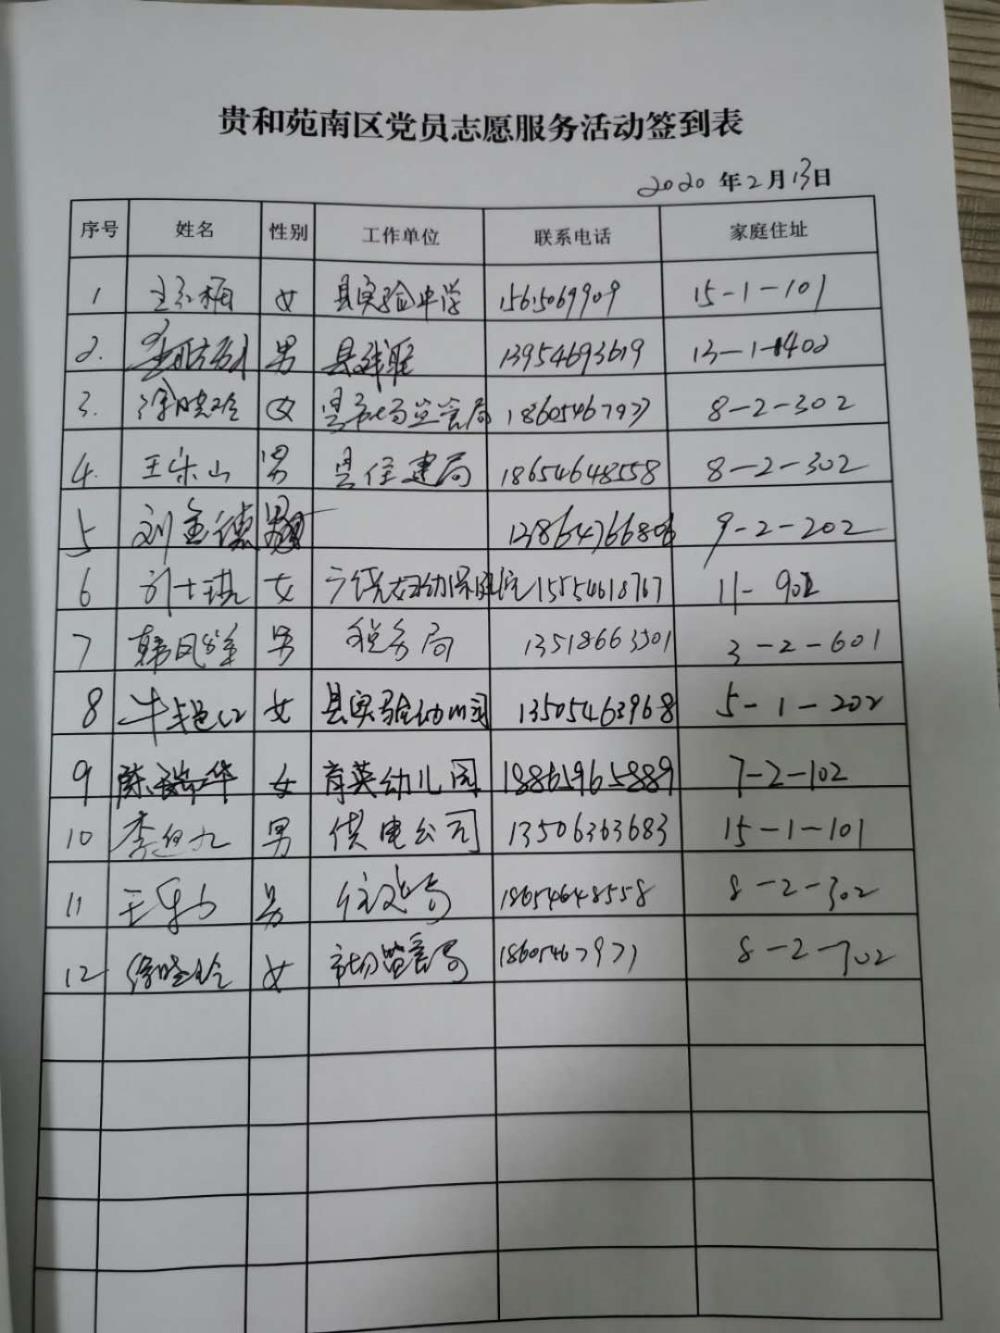 贵和苑南区党员志愿服务活动签到表
2020年2月13日
序号 姓名 性别 工作单位 联系电话 家庭住址
1 女 县实验中学 15615069909 15-1-101
2. 男 县残联 13954693619 13-1-1402
3. 徐晓玲 女 县市场监管局 8-2-302
4. 王乐山 男 县住建局 18654648558 8-2-302
5 刘金德 男 9-2-202
6 女 广饶妇幼保健院 15554618767 11-902
7 韩风 男 税务局 13518663501 3-2-601
8 牛 女 县实验幼儿园 13505463968 5-1-202
9 陈瑞华 女 育英幼儿园 18865965889 7-2-102
10 李 九 男 供电公司 13506363683 15-1-101
11 王乐山 男 住建局 18654648558 8-2-302
12 徐晓玲 女 市场监管局 8-2-702